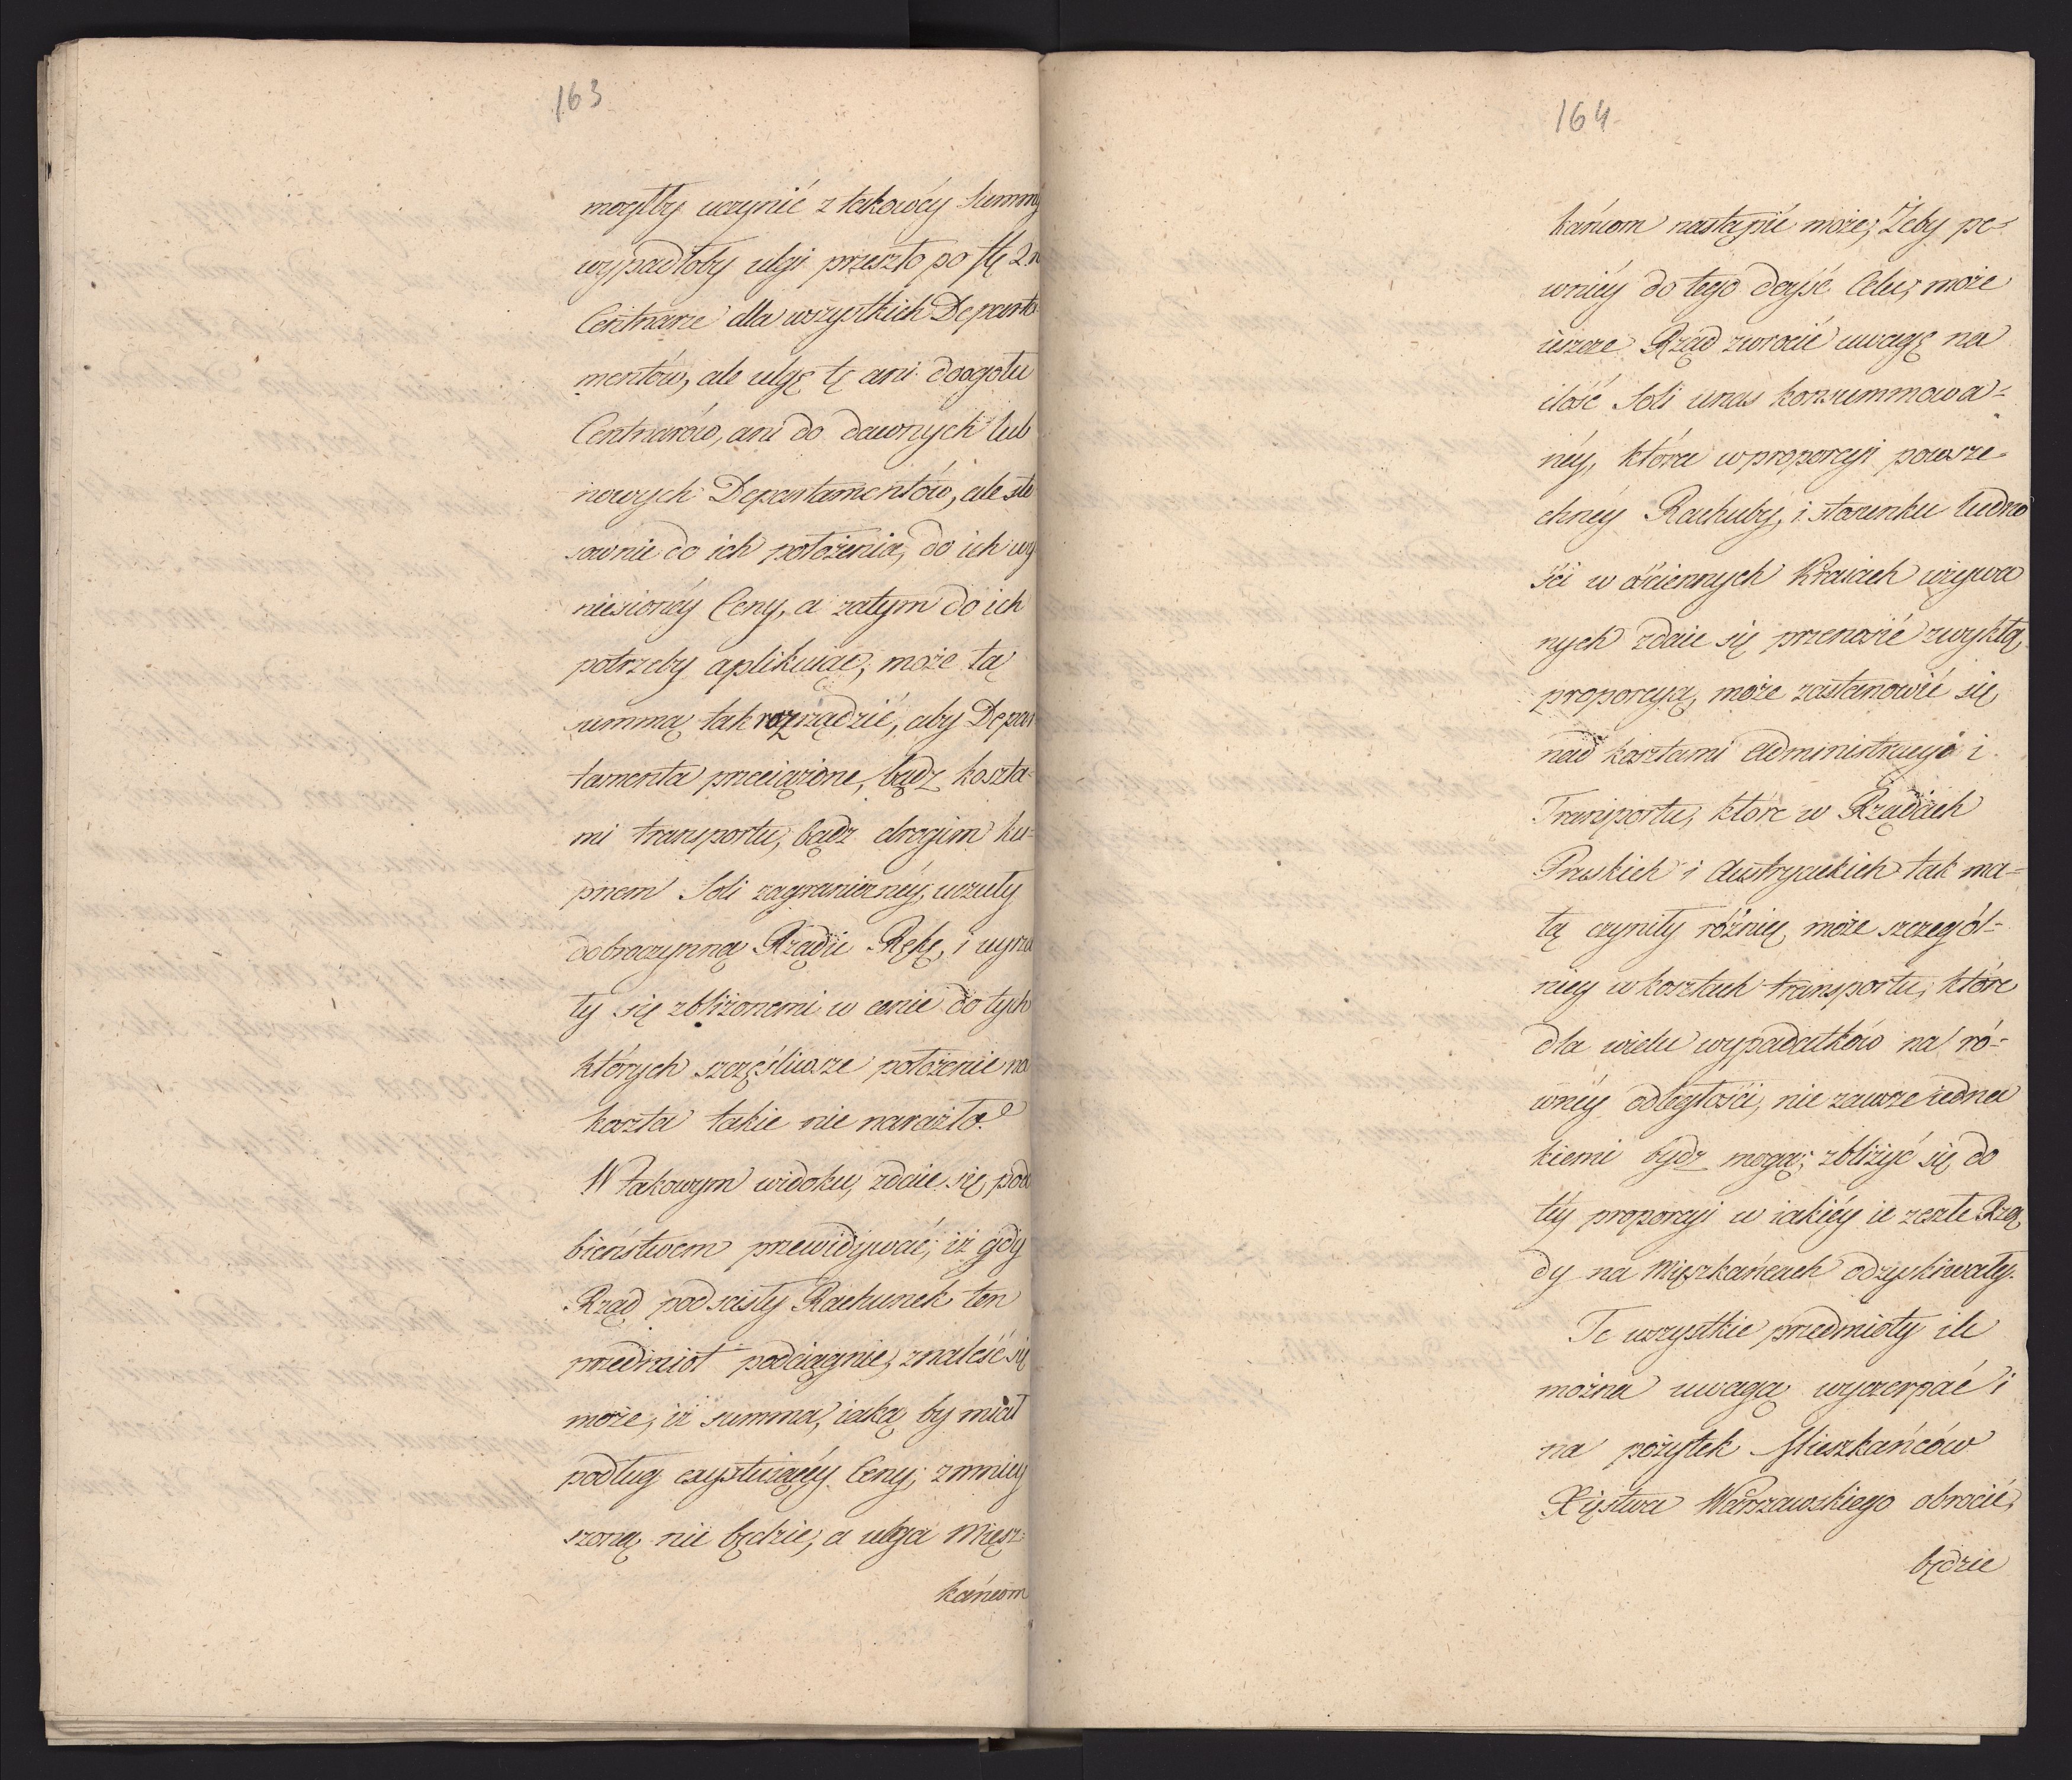 163
mogłby uczynić z takowéy Summy
wypadłoby ulgi przeszło po fł 2 n
Centnarze dla wszystkich Departa-
mentów, ale ulgę tę ani doogołu
Centnarów, ani do dawnych lub
nowych Departamentów, ale sto
sownie do ich położenia, do ich wy
niesionéy Ceny, a zatym do ich
potrzeby aplikuiąc, może tą
summą tak rozrządzić, aby Depar
tamenta przeciążone, bądz koszta-
mi transportu, bądz drogim ku-
pnem Soli zagranicznéy, uczuły
dobroczynną Rządu Rękę, i uyrza
ły się zbliżonemi w cenie do tych
których szczęśliwsze położenie na
koszta takie nie naraziło.
W takowym widoku, zdaie się, podo
bieństwem przewidywać, iż gdy
Rząd pod scisły Rachunek ten
przedmiot podciągnie, znaleść się
może, iż summa, iaką by miał
podług exystuiącéy Ceny, zmniey
szoną nie będzie, a ulga Mięsz-
kańcom
164
kańcom nastąpić może; Żeby pe-
wniéy do tego dojść Celu, może
ieszcze Rząd zwrocić uwagę na
ilość Soli unas konsummowa-
néy, która w proporcyi powsze-
chnéy Rachuby, i stosunku ludno
ści w ościennych Kraiach używa
nych zdaie się przenosić zwykłą
proporcyą, może zastanowić się
nad kosztami Administracyi i
Transportu, które w Rządach
Pruskich i Austryackich tak ma-
łą czyniły różnię, może szczegól-
niey w kosztach transportu, które
dla wielu wypadatków na ró-
wnéy odległości, nie zawsze iedna
kiemi bydz mogą, zbliżyć się do
téy proporcyi w iakiéy ie zeszłe Rzą
dy na Mięszkańcach odzyskiwały.
Te wszystkie przedmioty ile
można uwagą wyczerpać i
na pożytek Mieszkańców
Xięstwa Warszawskiego obrocić,
będzie